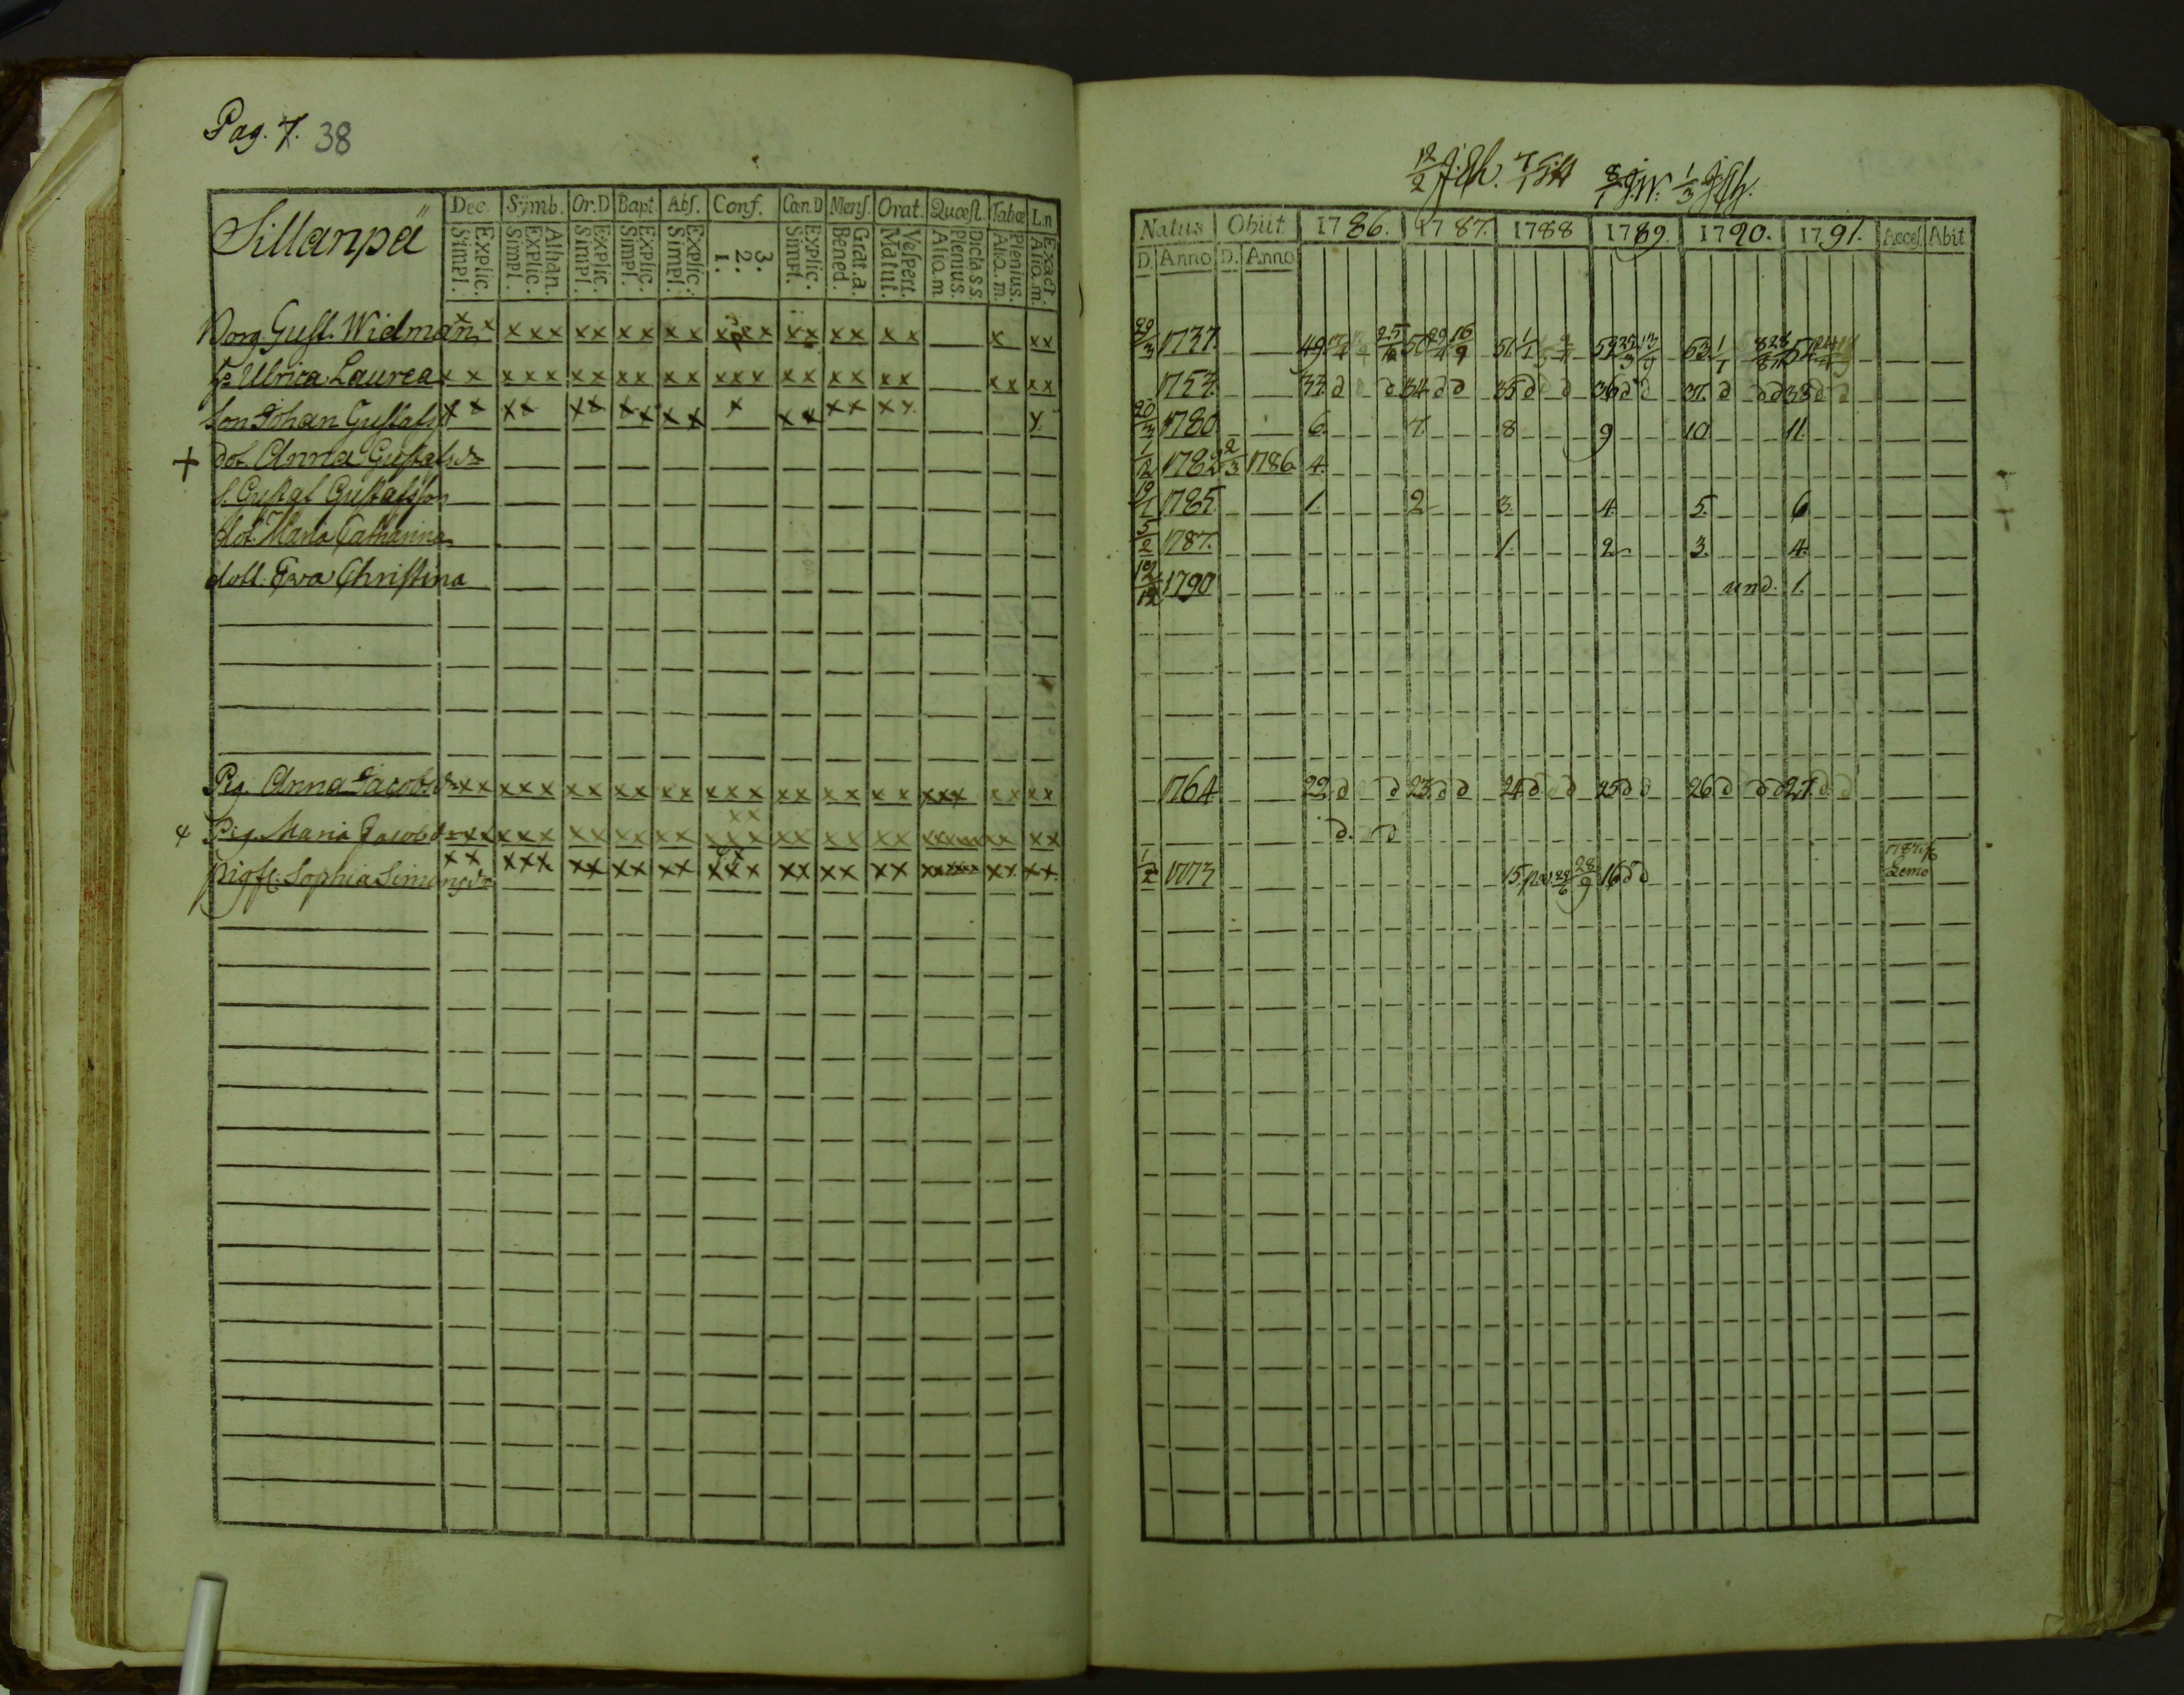 Pag. 7. 38
Sillanpä
Dec. Symb. Or.D Bapt. Abſ. Conf. Can.D Menſ. Orat. Quæſt. Tabæ L.n
Explic. Simpl. Athan. Explic. Simpl. Explic. Simpl. Explic. Simpl. Explic. Simpl. 3. 2. 1. Explic. Simpl. Grat.a. Bened. Veſpert. Matut. Dicta s s Plenius. Aliq.m Plenius. Aliq.m. Exact. Aliq.m.
Borg. Guſt. Widman x x x x x x x x x x x x x x x x x x x x x x x x
H. Ulrica Laurea x x x x x x x x x x x x x x x x x x x x x x x
Son Johan Guſtafs x x x x x x x x x x x x x x x x x x
+ dot. Anna Guſtafsdr
S. Guſtaf Guſtafsſon
dot. Maria Catharina
dott. Eva Chriſtina
Pig Anna Jacobsdr x x x x x x x x x x x x x x x x x x x x x x x x x x x
Pig. Maria Jacobsdr x x x x x x x x x x x x x x x x x x x x
pigfl. Sophia Simonsdr x x x x x x x x x x x x x x x x x x x x
12/2 8/1 1/3
Natus Obiit 1786. 1787. 1788 1789. 1790. 1791. Acceſ. Abit
D. Anno D. Anno
29/3 1737. 49 50 16/9 51 1/1 52 13/9 53 1/1
1753. 33. d d 34 d d 35 d d 36 d d 37. d d d 38 d d
20/3 1780 6. 7. 8 9 10 11.
1/12 1782 2/3 1786 4.
19/1 1785. 1. 2 3. 4. 5. 6
5/2 1787. 1. 2 3. 4.
12/12 1790 und. 1.
1764 22. d d 23. d d 24 d d 25 d d 26 d d d 27. d d
d. d
1/2 1773 15 29/6 28/9 16 d d Lemo